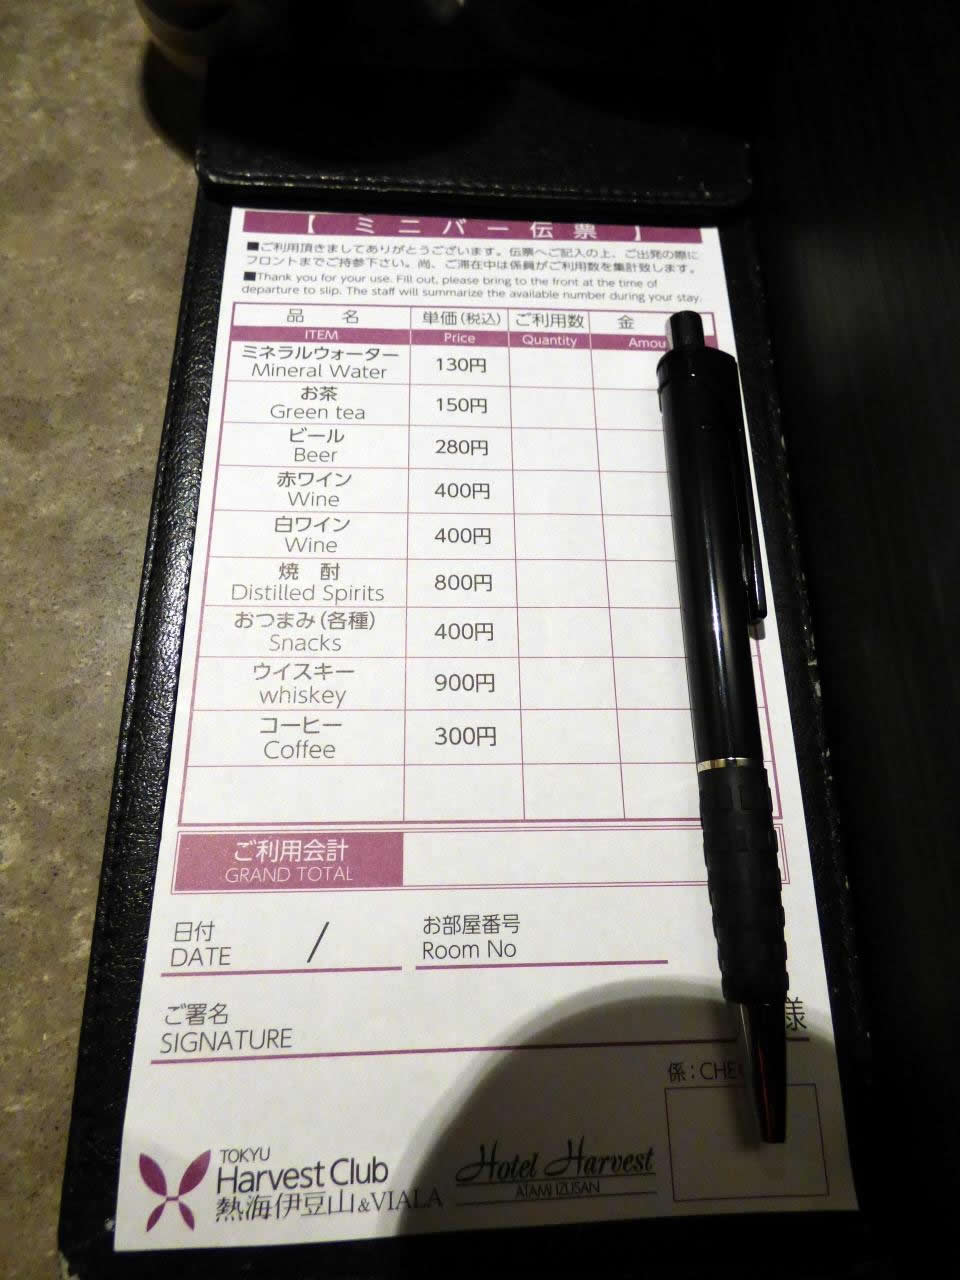 【 ミニバー伝票 】
■ご利用頂きましてありがとうございます。伝票へご記入の上、ご出発の際に
フロントまでご持参下さい。尚、ご滞在中は係員がご利用数を集計致します。
■Thank you for your use. Fill out, please bring to the front at the time of
departure to slip. The staff will summarize the available number during your stay.
品 名 単価(税込) ご利用数 金
ITEM Price Quantity Amou
ミネラルウォーター
Mineral Water 130円
お茶
Green tea 150円
ビール
Beer 280円
赤ワイン
Wine 400円
白ワイン
Wine 400円
焼 酎
Distilled Spirits 800円
おつまみ(各種)
Snacks 400円
ウイスキー
whiskey 900円
コーヒー
Coffee 300円
ご利用会計
GRAND TOTAL
日付 お部屋番号
DATE / Room No
ご署名 様
SIGNATURE
係:CHE
TOKYU
Harvest Club
熱海伊豆山&VIALA
Hotel Harvest
ATAMI IZUSAN